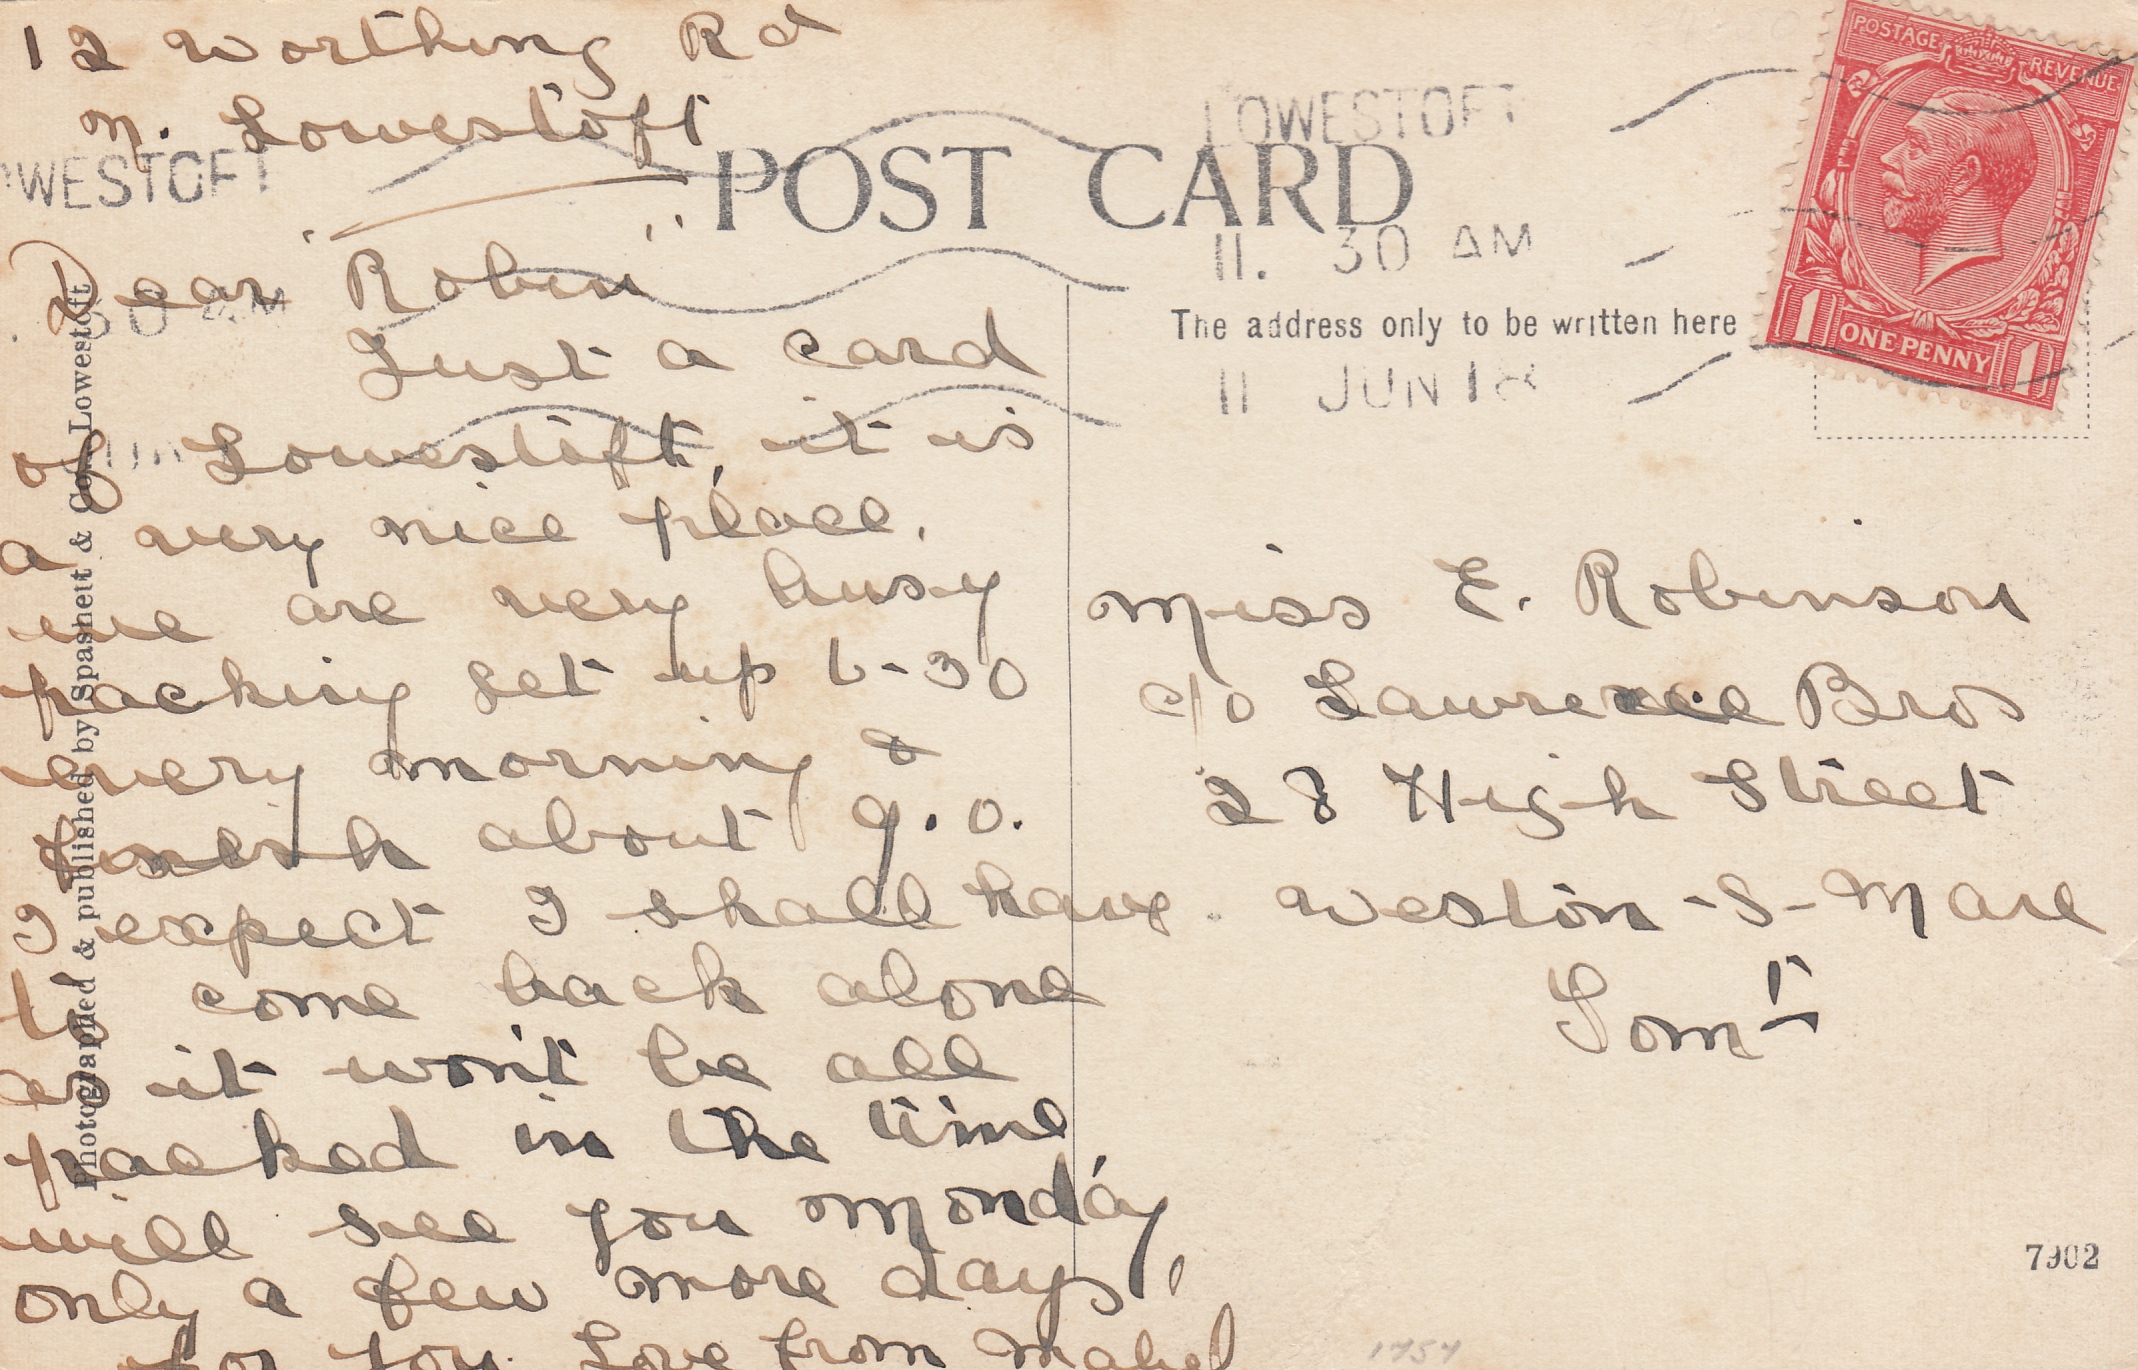 12 Worthing Rd
N. Lowestoft
Dear Robin
Just a card
of Lowestoft, it is
a very nice place.
we are very busy
packing get up 6-30
every morning &
finish about 9.0.
I expect I shall have
to come back alone
as it won't be all
packed in the time
will see you Monday,
only a few more days,
for you. Love from Mabel
POST CARD
The address only to be written here
LOWESTOFT
11. 30 AM
11 JUN 18
OWESTOFT
30 AM
POSTAGE REVENUE
1 ONE PENNY 1
Miss E. Robinson
c/o Lawrence Bros
28 High Street
Weston-S-Mare
Som't
Photographed & published by Spashett & Co., Lowestoft
7902
1454